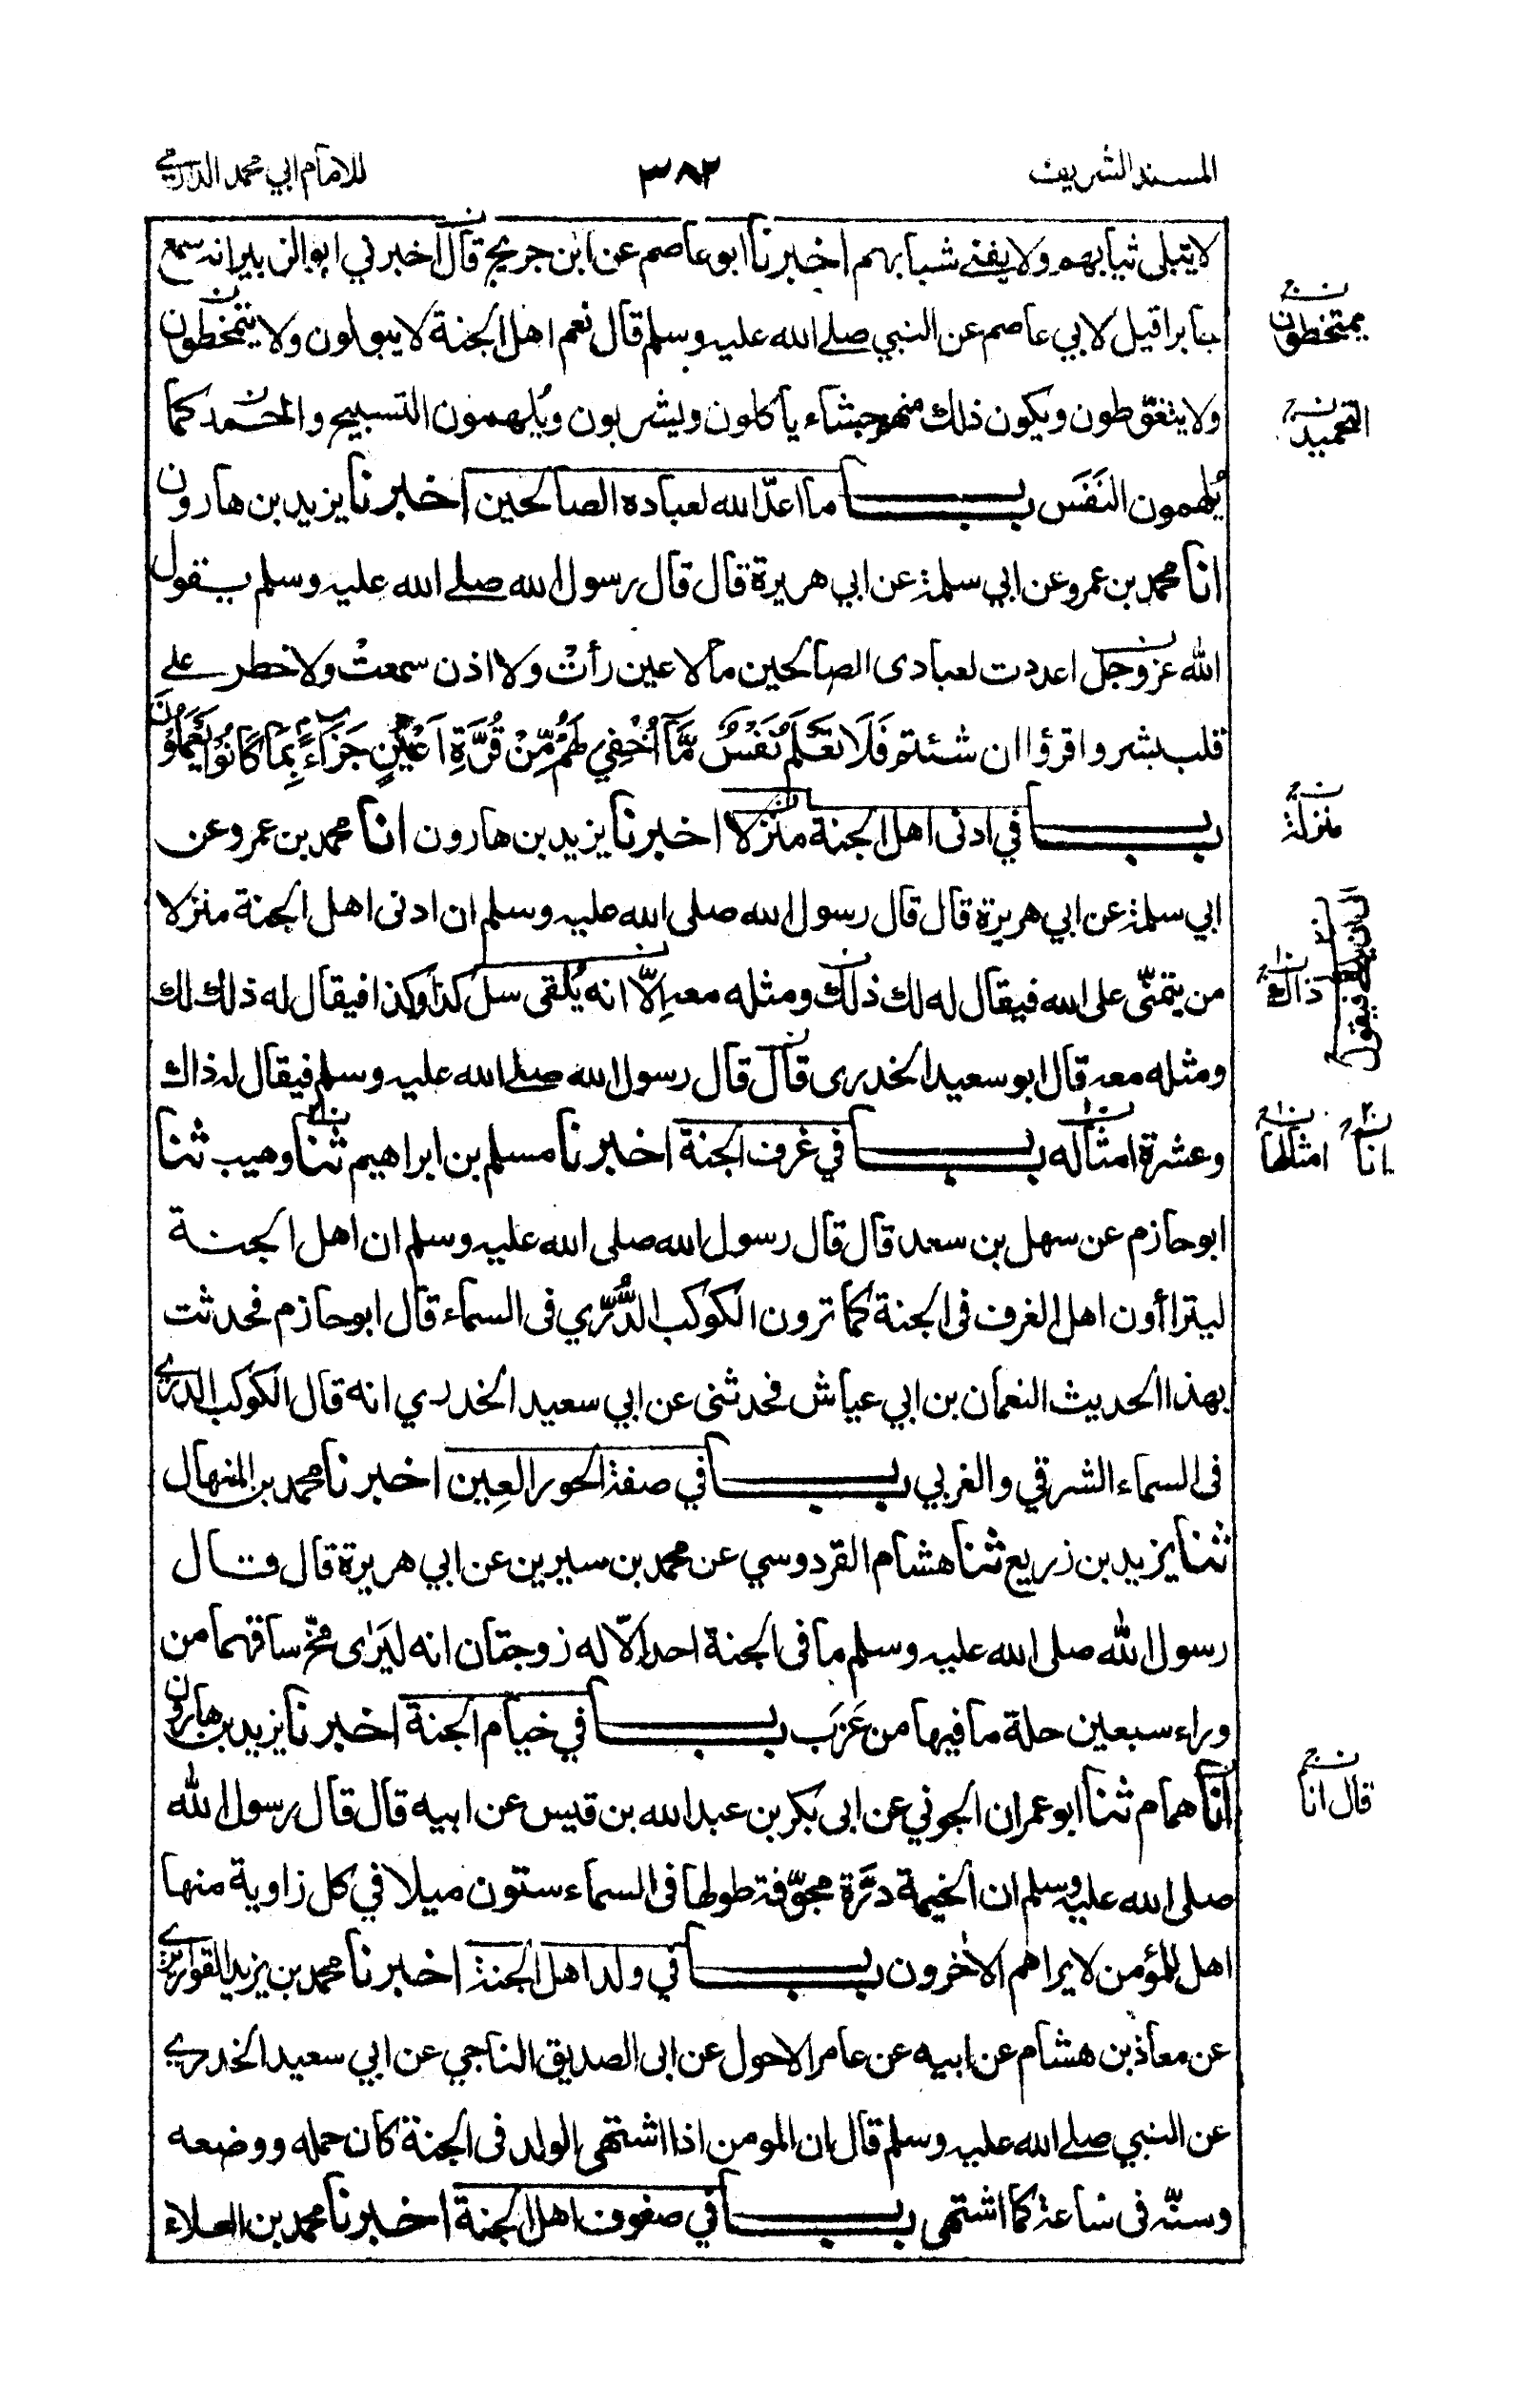 المسند الشريف ٣٨٢ للامام ابي محمد الدارمي
لا يتبلى ثيابهم ولا يفنى شبابهم اخبرنا ابو عاصم عن ابن جريج قال اخبرني ابو الزبير انه سمع
جابرا قيل لابي عاصم عن النبي صلى الله عليه وسلم قال نعم اهل الجنة لا يبولون ولا يتمخطون
ولا يتغوّطون ويكون ذلك منهم جشاء يأكلون ويشربون ويُلهمون التسبيح والحمد كما
يُلهمون النَفَسَ باب ما اعدّ الله لعباده الصالحين اخبرنا يزيد بن هارون
انا محمد بن عمرو عن ابي سلمة عن ابي هريرة قال قال رسول الله صلى الله عليه وسلم يقول
الله عز وجل اعددت لعبادى الصالحين ما لا عين رأتْ ولا اذن سمعتْ ولا خطر على
قلب بشر واقرؤا ان شئتم فَلَا تَعْلَمُ نَفْسٌ مَّآ اُخْفِيَ لَهُمْ مِّنْ قُرَّةِ اَعْيُنٍ جَزَآءً بِمَا كَانُوْا يَعْمَلُوْنَ
باب في ادنى اهل الجنة منزلا اخبرنا يزيد بن هارون انا محمد بن عمرو عن
ابي سلمة عن ابي هريرة قال قال رسول الله صلى الله عليه وسلم ان ادنى اهل الجنة منزلا
من يتمنّى على الله فيقال له لك ذلك ومثله معه اِلّا انه يُلقى سل كذا وكذا فيقال له ذلك لك
ومثله معه قال ابو سعيد الخدرى قال قال رسول الله صلى الله عليه وسلم فيقال له ذاك
وعشرة امثاله باب في غرف الجنة اخبرنا مسلم بن ابراهيم ثنا وهيب ثنا
ابو حازم عن سهل بن سعد قال قال رسول الله صلى الله عليه وسلم ان اهل الجنة
ليتراأون اهل الغرف فى الجنة كما ترون الكوكب الدُّرّي فى السماء قال ابو حازم فحدثت
بهذا الحديث النعمان بن ابي عياش فحدثنى عن ابي سعيد الخدري انه قال الكوكب الدري
فى السماء الشرقي والغربي باب في صفة الحور العِين اخبرنا محمد بن المنهال
ثنا يزيد بن زريع ثنا هشام القردوسي عن محمد بن سيرين عن ابي هريرة قال قال
رسول الله صلى الله عليه وسلم ما فى الجنة احد اِلّا له زوجتان انه ليَرٰى مخّ ساقهما من
وراء سبعين حلة ما فيها من عَزَب باب في خيام الجنة اخبرنا يزيد بن هارون
انا همام ثنا ابو عمران الجوني عن ابى بكر بن عبد الله بن قيس عن ابيه قال قال رسول الله
صلى الله عليه وسلم ان الخيمة درَّة مجوّفة طولها فى السماء ستون ميلا في كل زاوية منها
اهل للمؤمن لا يراهم الاٰخرون باب في ولد اهل الجنة اخبرنا محمد بن يزيد القواريري
عن معاذ بن هشام عن ابيه عن عامر الاحول عن ابى الصديق الناجي عن ابي سعيد الخدري
عن النبي صلى الله عليه وسلم قال ان المومن اذا اشتهى الولد فى الجنة كان حمله ووضعه
وسنّه فى ساعة كما اشتهى باب في صفوف اهل الجنة اخبرنا محمد بن العلاء
يمتخطون
التحميد
منزلة
ذاك
انا
امثالها
قال انا